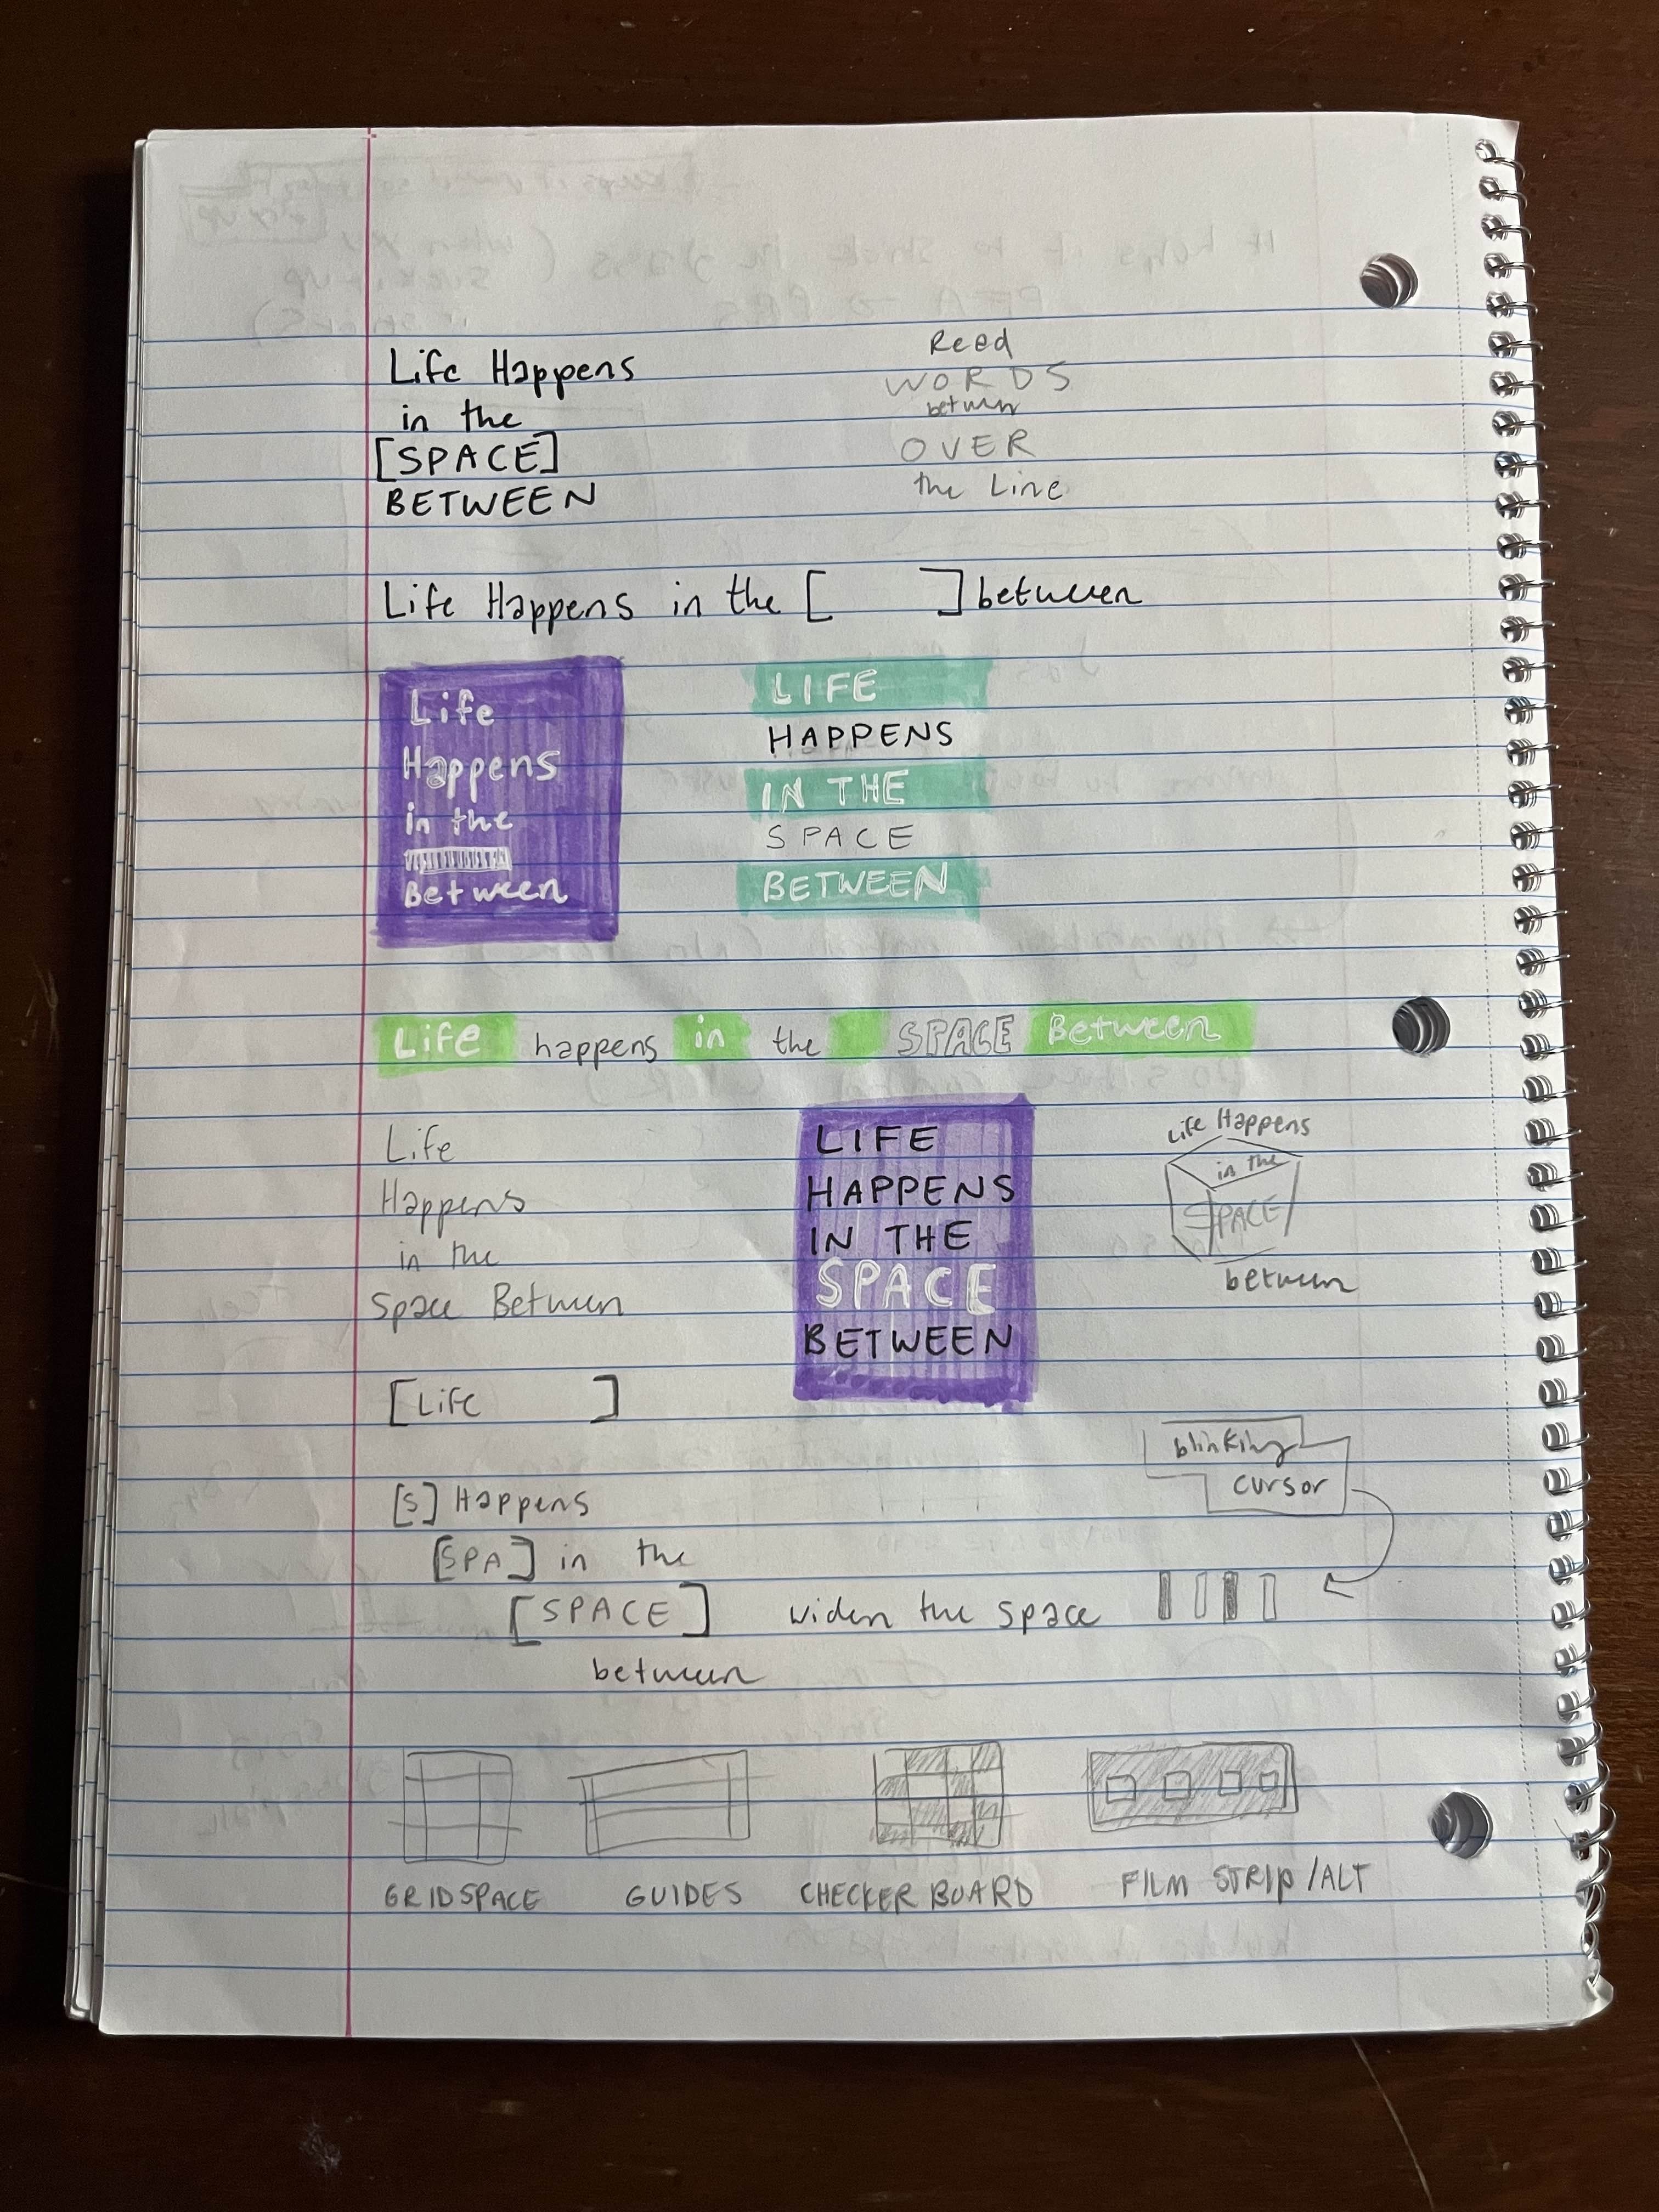 Life Happens
in the
[SPACE]
BETWEEN
Read
WORDS
between
OVER
the Line
Life Happens in the [ ] between
Life
Happens
in the
Between
LIFE
HAPPENS
IN THE
SPACE
BETWEEN
Life happens in the SPACE Between
Life
Happens
in the
Space Between
LIFE
HAPPENS
IN THE
SPACE
BETWEEN
Life Happens
in the
SPACE
between
[Life ]
blinking
cursor
[S] Happens
[SPA] in the
[SPACE] widen the space
between
GRIDSPACE GUIDES CHECKER BOARD FILM STRIP/ALT